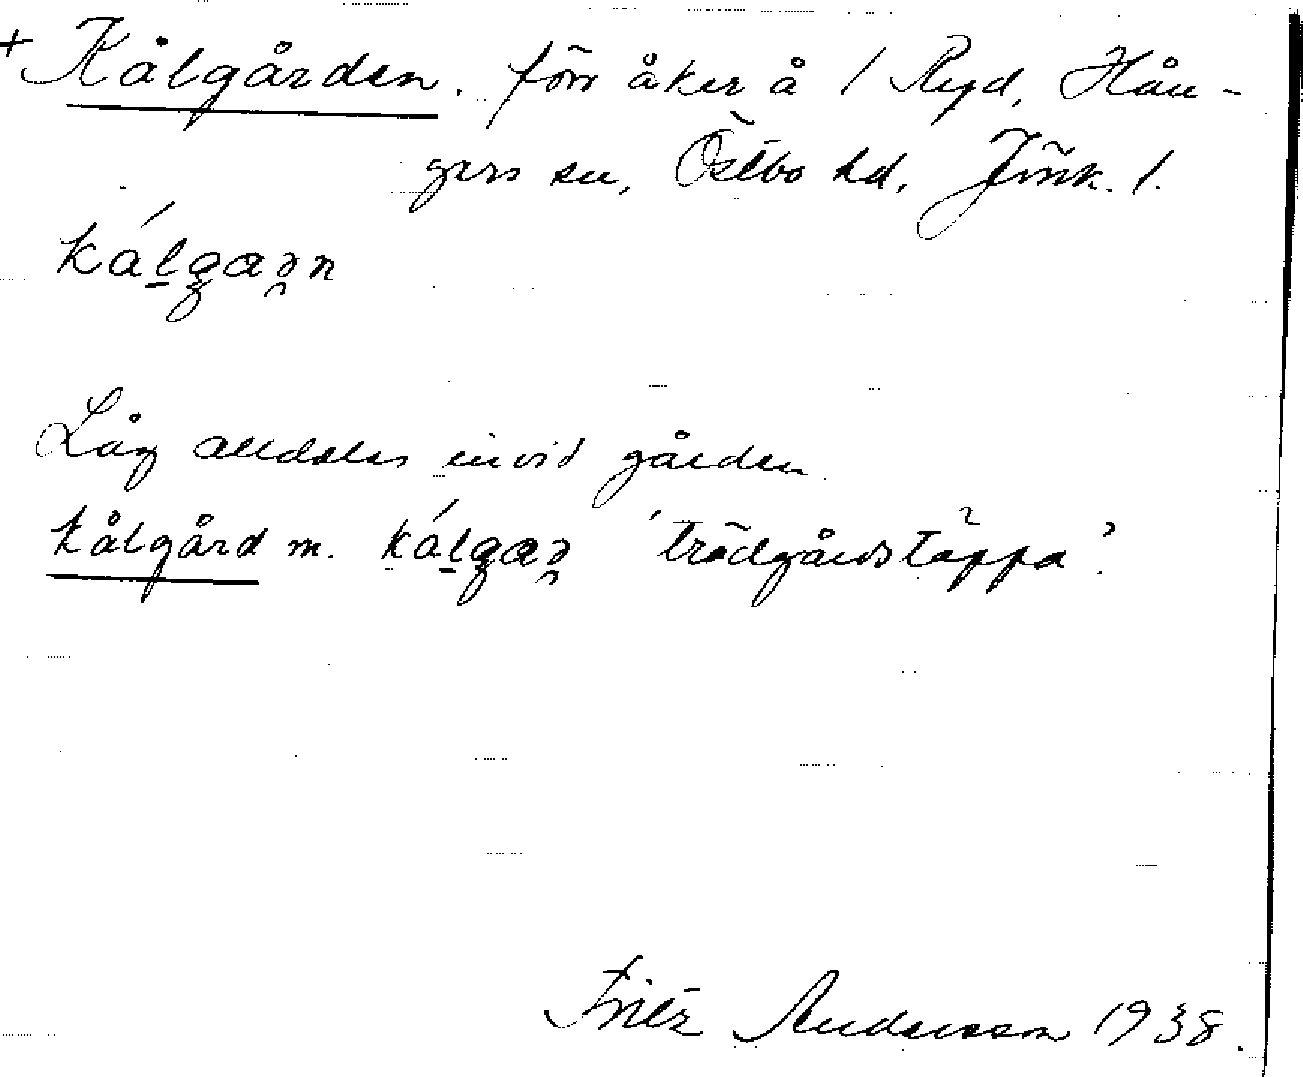 + Kålgården. förr åker å 1 Ryd, Hån-
gers sn, Östbo hd, Jönk. l.
kálgaən
Låg alldeles invid gården
kålgård m. kálgaə 'trädgårdstäppa'.
Fritz Andersson 1938.